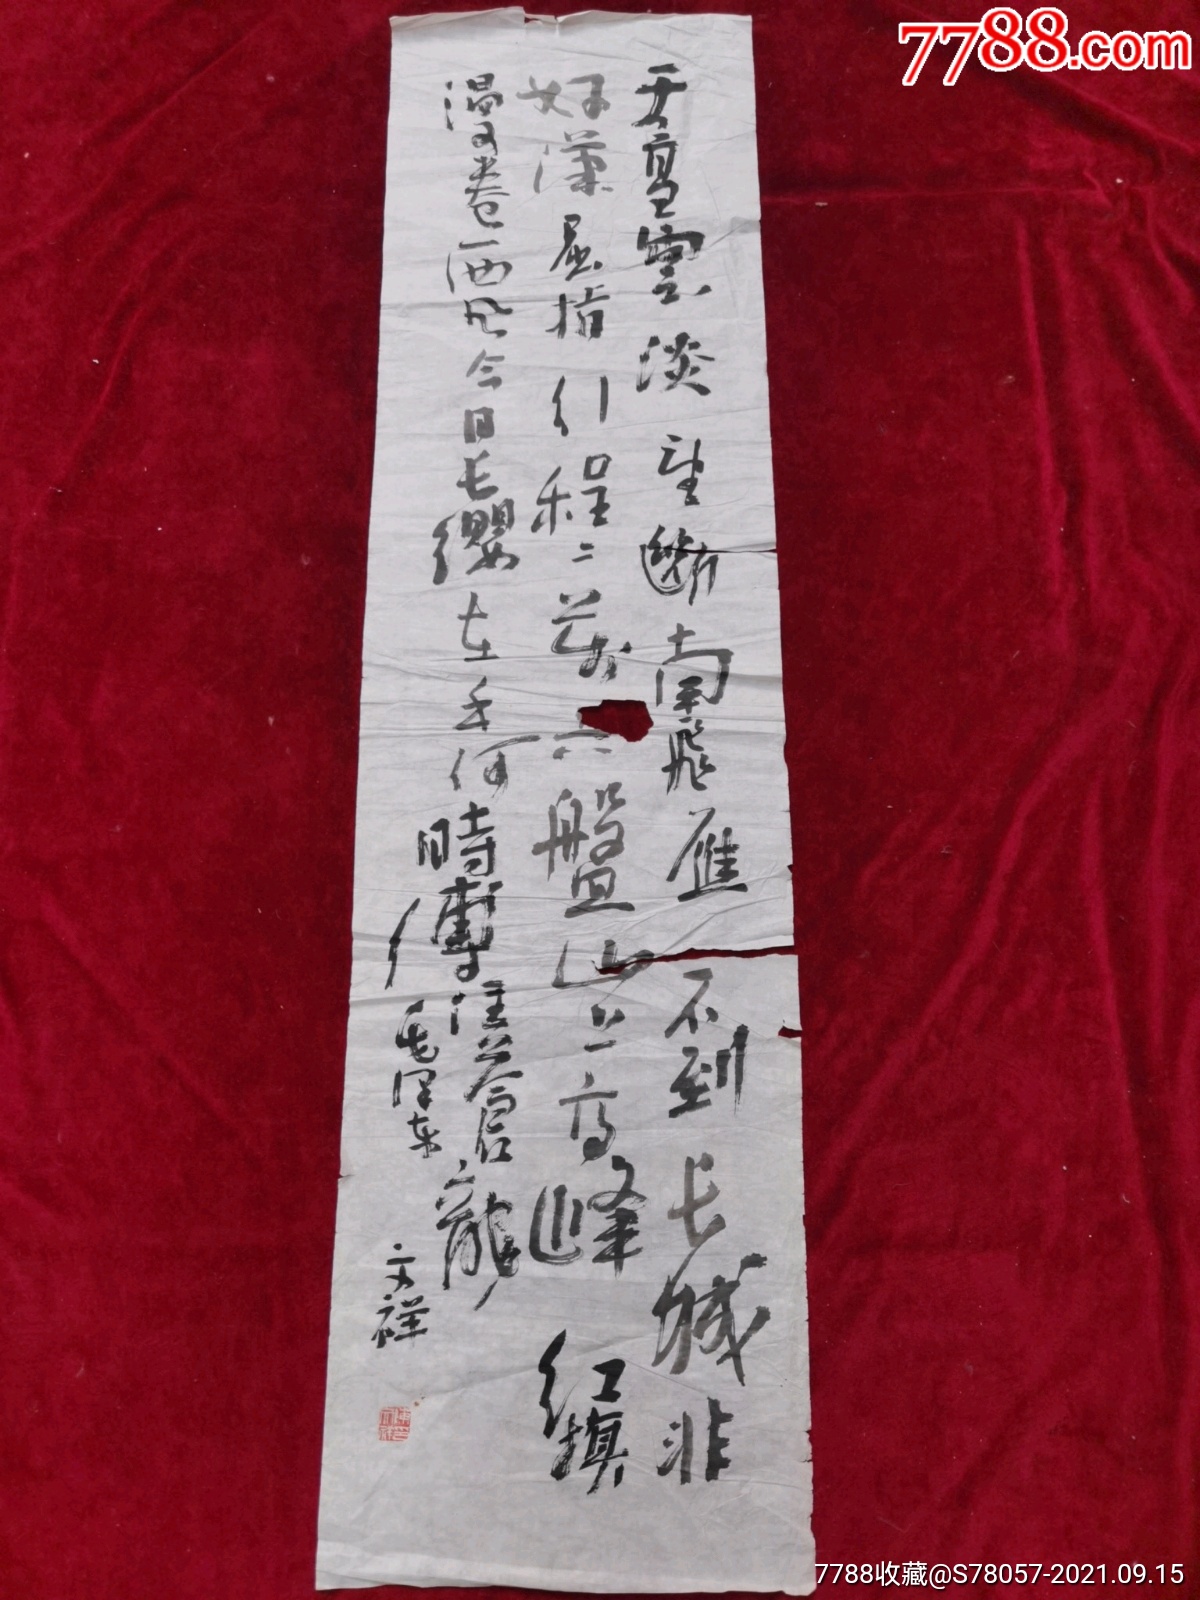 7788.com
天高雲淡望斷南飛雁不到长城非
好漢屈指行程二萬六盤山上高峰红旗
漫卷西风今日长纓在手何時縛住蒼龍
毛泽东
文祥
7788收藏@S78057-2021.09.15